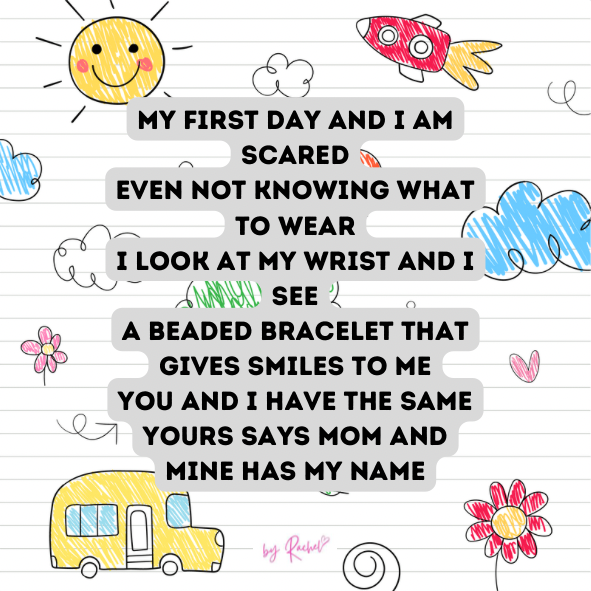 MY FIRST DAY AND I AM
SCARED
EVEN NOT KNOWING WHAT
TO WEAR
I LOOK AT MY WRIST AND I
SEE
A BEADED BRACELET THAT
GIVES SMILES TO ME
YOU AND I HAVE THE SAME
YOURS SAYS MOM AND
MINE HAS MY NAME
by Rachel